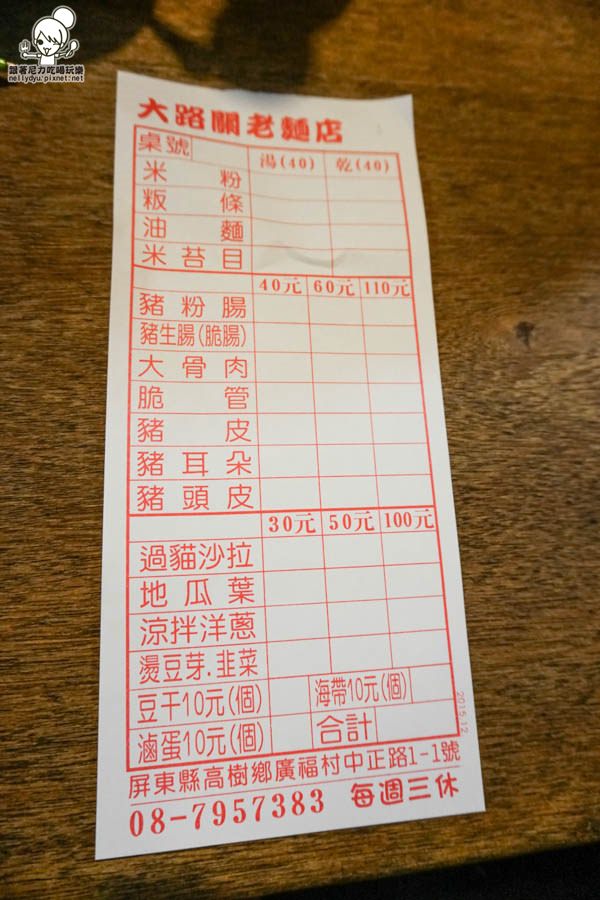 跟著尼力吃喝玩樂
nellydyu.pixnet.net
大路關老麵店
桌號 湯(40) 乾(40)
米粉
粄條
油麵
米苔目
40元 60元 110元
豬粉腸
豬生腸(脆腸)
大骨肉
脆管
豬皮
豬耳朵
豬頭皮
30元 50元 100元
過貓沙拉
地瓜葉
涼拌洋蔥
燙豆芽.韭菜
豆干10元(個) 海帶10元(個)
滷蛋10元(個) 合計
2015.12
屏東縣高樹鄉廣福村中正路1-1號
08-7957383 每週三休